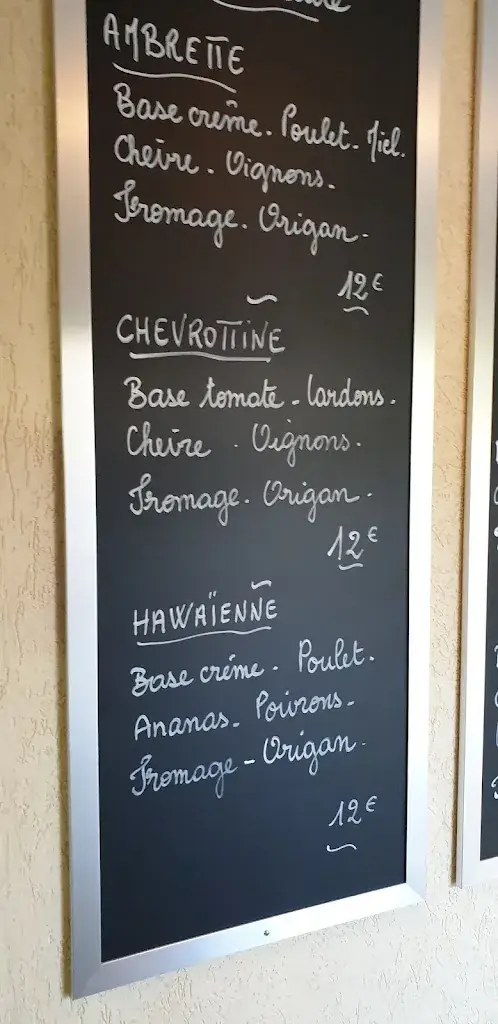 AMBRETTE
Base crème. Poulet. Miel.
Chèvre. Oignons.
Fromage. Origan.
12€
CHEVROTTINE
Base tomate - lardons.
Chèvre. Oignons.
Fromage. Origan.
12€
HAWAÏENNE
Base crème. Poulet.
Ananas. Poivrons.
Fromage - Origan.
12€